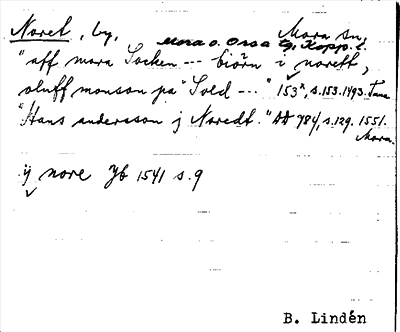 Noret, by, Mora sn,
Mora o. Orsa tg, Kopp. l.
"aff mora Socken --- biörn i norett,
oluff monson pa "Sold --- " 153, s. 153. 1493.
"Hans andersson j Noredt." DA 984, s. 129. 1551.
Mora.
ij nore Jb 1541 s. 9
B. Lindén